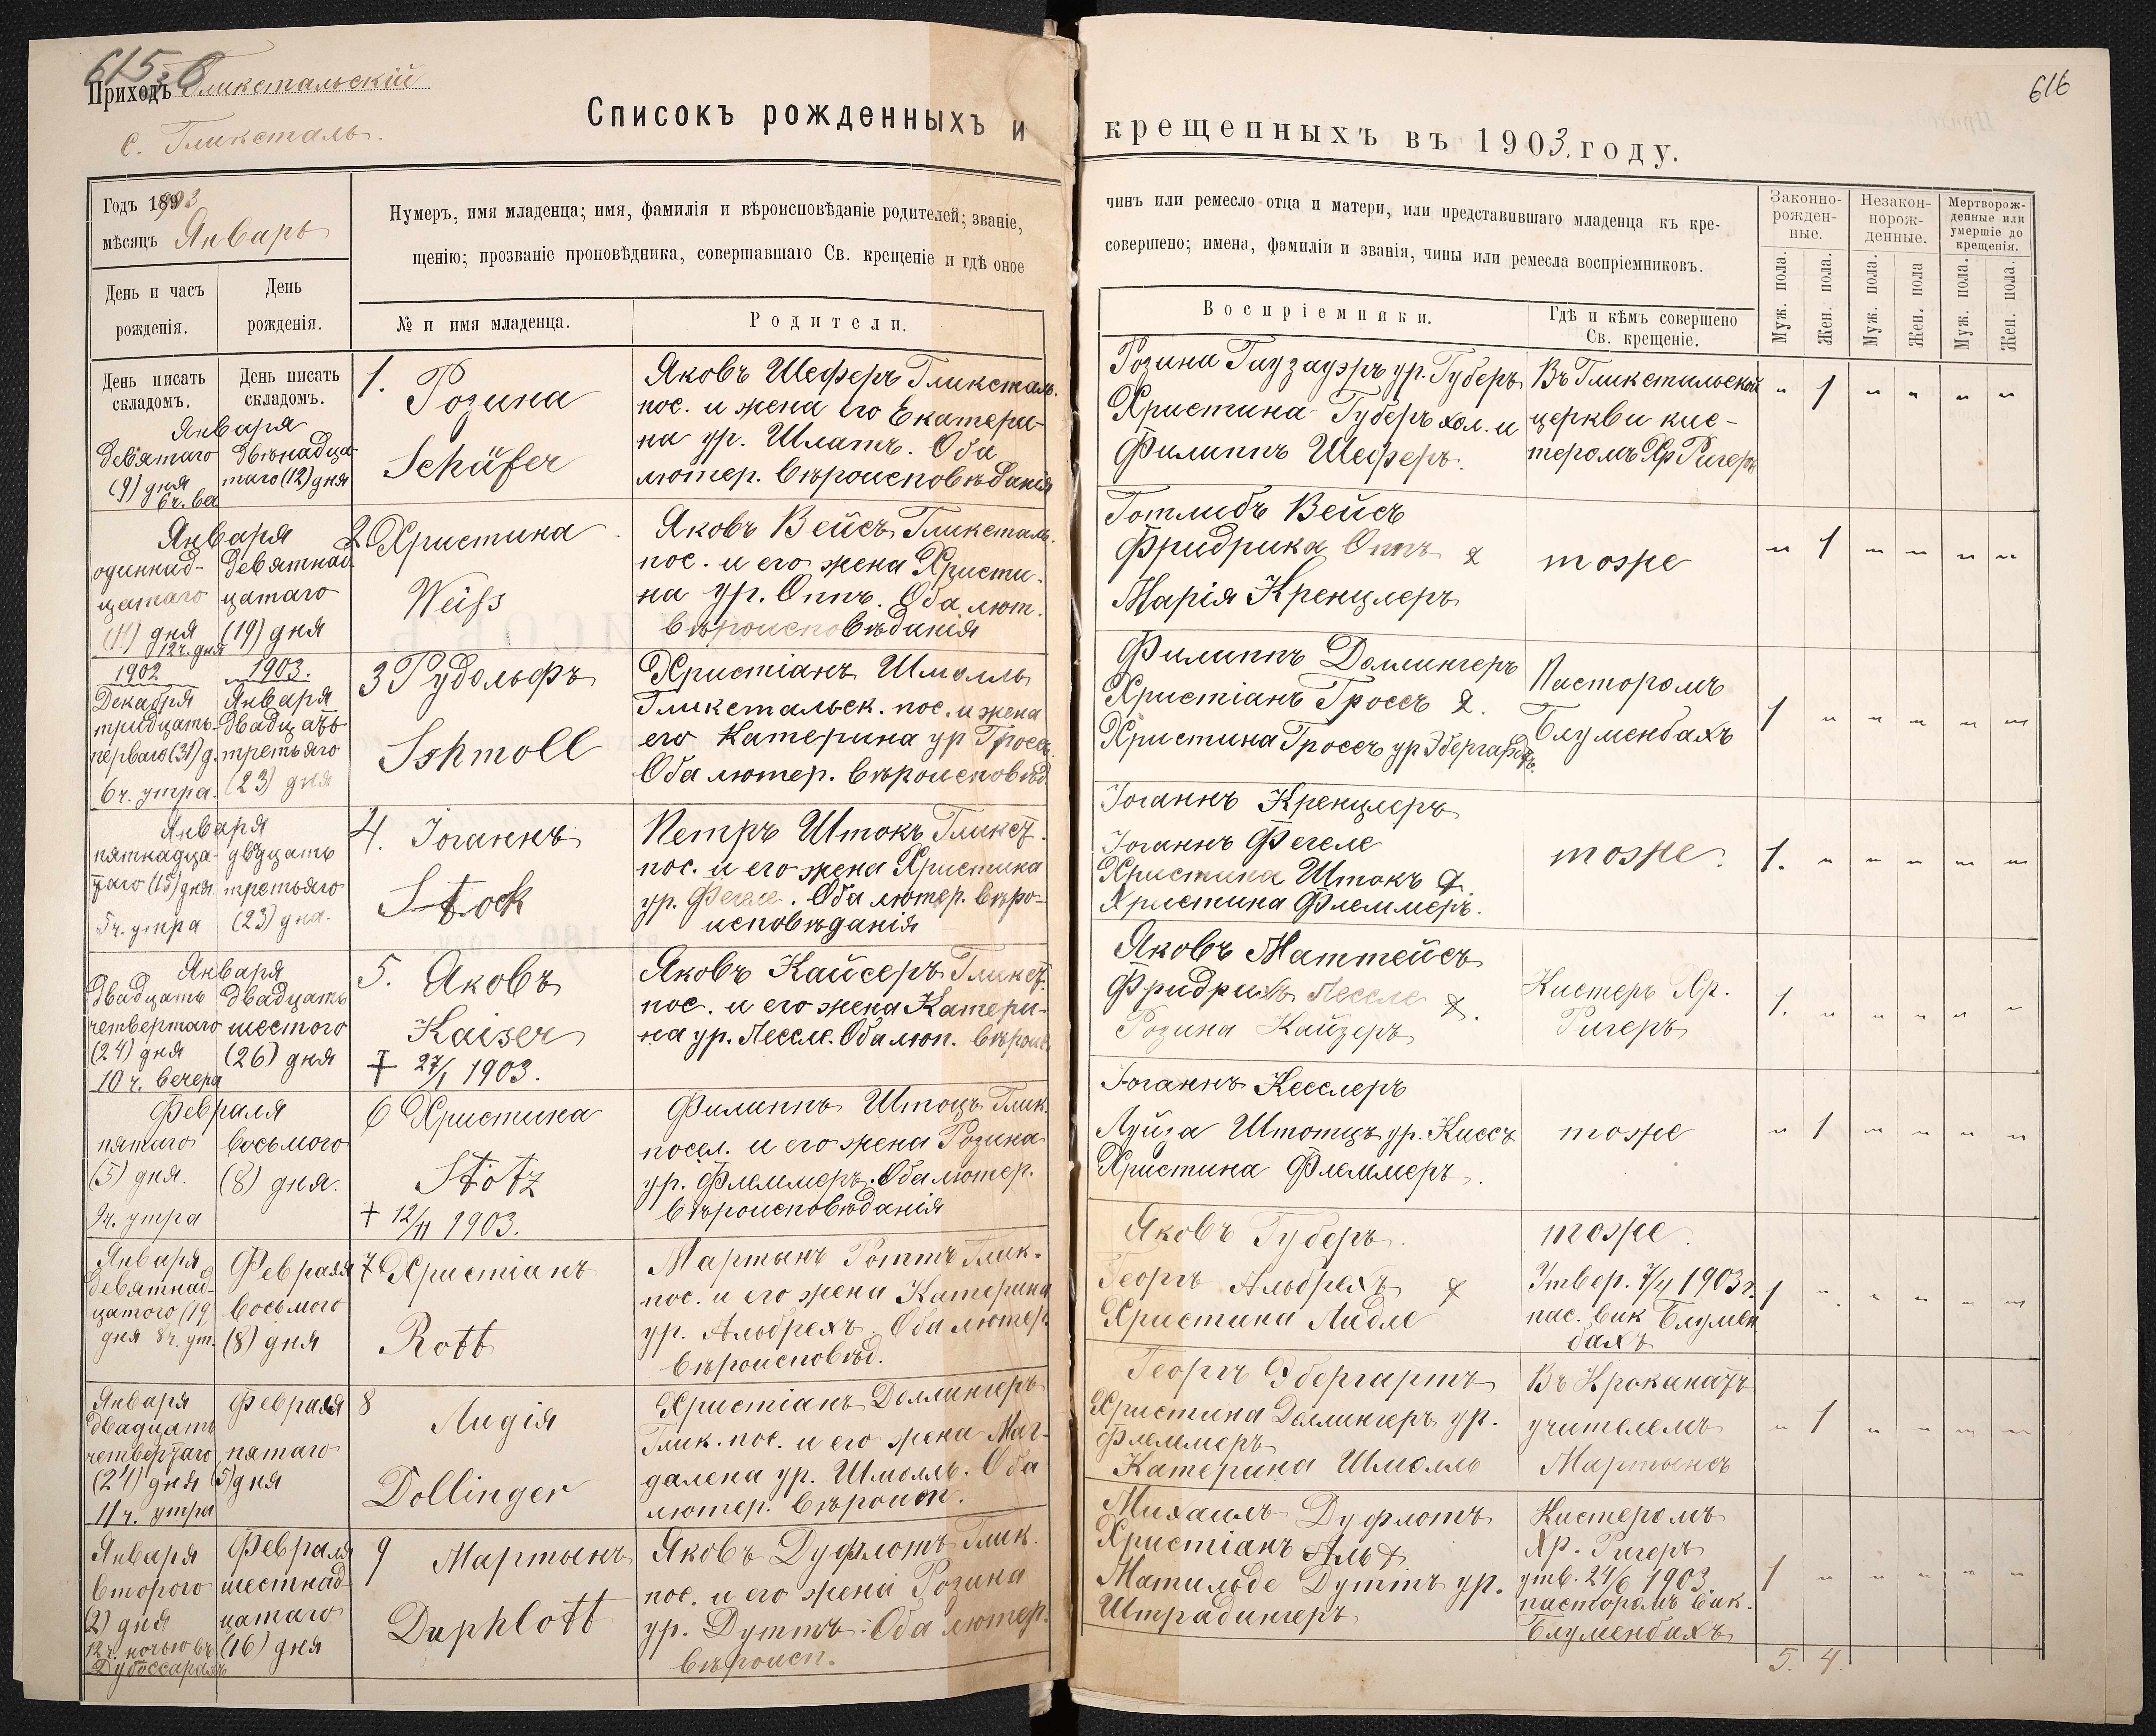 615
Приходъ Гликстальскій
с. Гликсталь.
Списокъ рожденныхъ и
Годъ 1903
мѣсяцъ Январь
Нумеръ, имя младенца; имя, фамилія и вѣроисповѣданіе родителей; званіе,
щенію; прозваніе проповѣдника, совершавшаго Св. крещеніе и гдѣ оное
День и часъ рожденія.
День рожденія.
№ и имя младенца.
Родители.
День писать складомъ.
День писать складомъ.
Января
девятаго
(9) дня
6 ч. ве
двѣнадца-
таго (12) дня
1. Розина
Schäfer
Яковъ Шеферъ Гликсталь.
пос. и жена его Екатери-
на ур. Шлатъ. Оба
лютер. вѣроисповѣданія
Января
одиннад-
цатаго
(11) дня
12 ч. дня
девятнад-
цатаго
(19) дня
2 Христина
Weiss
Яковъ Вейсъ Гликсталь.
пос. и его жена Христи-
на ур. Оппъ. Оба лют.
вѣроисповѣданія
1902
Декабря
тридцать
перваго (31) д.
6 ч. утра.
1903.
Января
двадцать
третьяго
(23) дня
3 Рудольфъ
Schmoll
Христіанъ Шмолль
Гликстальск. пос. и жена
его Катерина ур Гроссъ
Оба лютер. вѣроисповѣд.
Января
пятнадца-
таго (15) дня
5 ч. утра
двадцать
третьяго
(23) дня.
4. Іоганнъ
Stock
Петръ Штокъ Гликст.
пос. и его жена Христина
ур. Фегеле. Оба лютер. вѣро-
исповѣданія
Января
двадцать
четвертаго
(24) дня
10 ч. вечера
двадцать
шестого
(26) дня
5. Яковъ
Kaiser
† 27/I 1903.
Яковъ Кайсеръ Гликст.
пос. и его жена Катери-
на ур. Лессле. Оба лют. вѣроис
Февраля
пятаго
(5) дня.
9 ч. утра
восьмого
(8) дня.
6 Христина
Stotz
† 12/II 1903.
Филиппъ Штоцъ Глик.
посел. и его жена Розина
ур. Флеммеръ. Оба лютер.
вѣроисповѣданія
Января
девятнад-
цатого (19
дня 8 ч. ут.
Февраля
восьмого
(8) дня
7 Христіанъ
Rott
Мартынъ Роттъ Глик.
пос. и его жена Катерина
ур. Альбрехъ. Оба лютер.
вѣроисповѣд.
Января
двадцать
четвертаго
(24) дня
11 ч. утра
Февраля
пятаго
(5) дня
8 Лидія
Dollinger
Христіанъ Доллингеръ
Глик. пос. и его жена Маг-
далена ур. Шмолль. Оба
лютер. вѣроисп.
Января
второго
(2) дня
12 ч. ночью въ
Дубоссарахъ
Февраля
шестнад-
цатаго
(16) дня
9 Мартынъ
Duphlott
Яковъ Дуфлотъ Глик.
пос. и его жена Розина
ур. Дуттъ. Оба лютер.
вѣроисп.
616
крещенныхъ въ 1903. году.
чинъ или ремесло отца и матери, или представившаго младенца къ кре-
совершено; имена, фамиліи и званія, чины или ремесла воспріемниковъ.
Воспріемники.
Гдѣ и кѣмъ совершено Св. крещеніе.
Законно-рожден-ные.
Незакон-норож-денные.
Мертворож-денные или умершіе до крещенія.
Муж. пола.
Жен. пола.
Муж. пола.
Жен. пола
Муж. пола.
Жен. пола.
Розина Гаузауэръ ур. Губеръ
Христина Губеръ хол. и
Филиппъ Шеферъ.
Въ Гликстальской
церкви кис-
теромъ Хр Ригеръ
" 1 " " " "
Готлибъ Вейсъ
Фридрика Оппъ &
Марія Кренцлеръ
тоже
" 1 " " " "
Филиппъ Доллингеръ
Христіанъ Гроссъ &.
Христина Гроссъ ур Эбергардтъ.
Пасторомъ
Блуменбахъ
1 " " " " "
Іоганнъ Кренцлеръ
Іоганнъ Фегеле
Христина Штокъ &.
Христина Флеммеръ.
тоже.
1. " " " " "
Яковъ Маттейсъ
Фридрихъ Лессле &.
Розина Кайзеръ
Кистеръ Хр.
Ригеръ
1. " " " " "
Іоганнъ Кесслеръ
Луиза Штотцъ ур. Киссъ
Христина Флеммеръ.
тоже
" 1 " " " "
Яковъ Губеръ.
Георгъ Альбрехъ &
Христина Лидле
тоже.
Утвер. 7/IV 1903 г.
пас. вик Блумен
бахъ
1 " " " " "
Георгъ Эбергартъ
Христина Доллингеръ ур.
Флеммеръ
Катерина Шмолль
Въ Крокинатъ
учителемъ
Мартенсъ
" 1 " " " "
Михаилъ Дуфлотъ
Христіанъ Аль &
Матильде Дуттъ ур.
Штрадингеръ
Кистеромъ
Хр. Ригеръ
утв. 24/6 1903
пасторомъ вик.
Блуменбахъ
1 " " " " "
5. 4